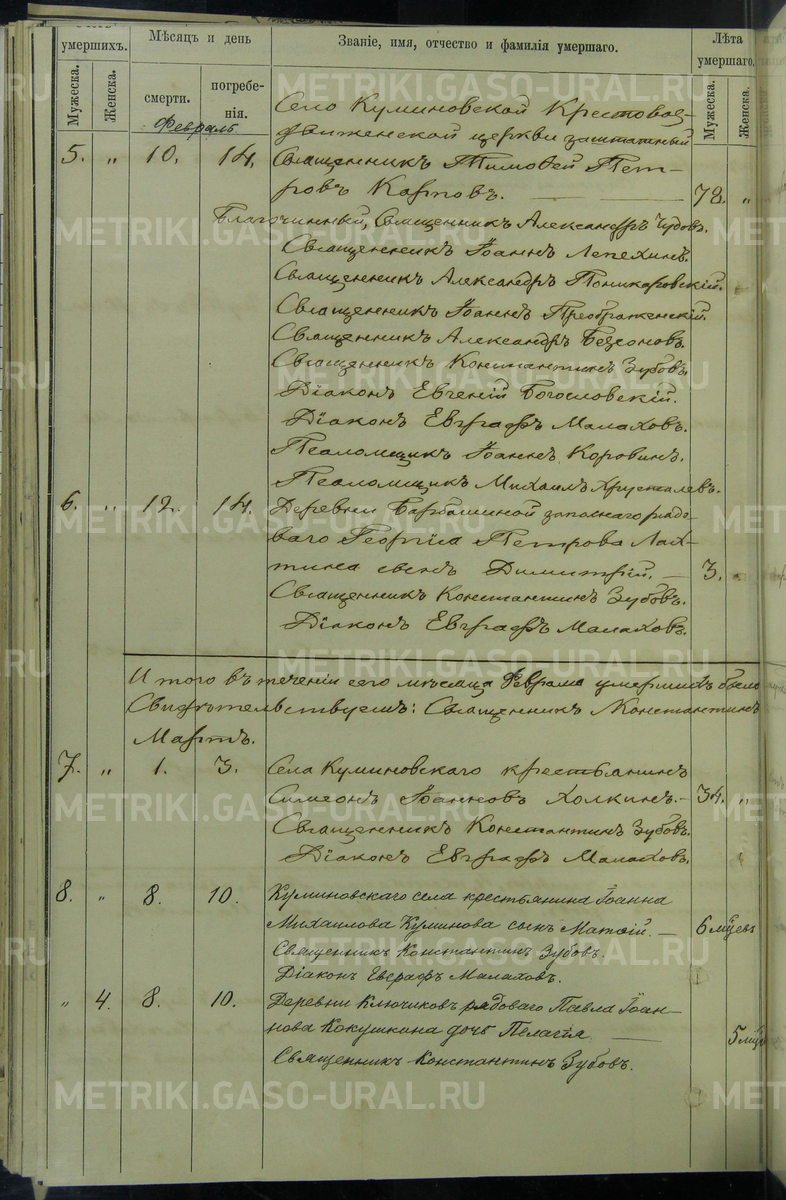 умершихъ. Мѣсяцъ и день Званіе, имя, отчество и фамилія умершаго. Лѣта умершаго.
Мужеска. Женска. смерти. погребенія. Мужеска. Женска.
Февраль
Село Куминовской Крестовоз-
движенской церкви заштатный
5. „ 10. 14. Священникъ Тимоѳей Пет-
ровъ Карповъ. 78. „
Благочинный, Священникъ Александръ Чудовъ.
Священникъ Іоаннъ Лепехинъ.
Священникъ Александръ Поникаровскій.
Священникъ Іоаннъ Преображенскій.
Священникъ Александръ Безсоновъ.
Священникъ Константинъ Зубовъ.
Діаконъ Евгеній Богословскій.
Діаконъ Евграфъ Малаховъ.
Псаломщикъ Іоаннъ Коровинъ.
Псаломщикъ Михаилъ Хрусталевъ.
6. „ 12. 14. Деревни Барбашиной запаснаго рядо-
ваго Георгія Петрова Лах-
тина сынъ Димитрій. 3. „
Священникъ Константинъ Зубовъ.
Діаконъ Евграфъ Малаховъ.
Итого въ теченіи сего мѣсяца Февраля умершихъ было
Свидѣтельствуемъ: Священникъ Константинъ
Мартъ.
7. „ 1. 3. Села Куминовскаго крестьянинъ
Симеонъ Іоанновъ Холкинъ. 34. „
Священникъ Константинъ Зубовъ.
Діаконъ Евграфъ Малаховъ.
8. „ 8. 10. Куминовскаго села крестьянина Іоанна
Михаилова Куминова сынъ Матѳій. 6 мѣцевъ
Священникъ Константинъ Зубовъ.
Діаконъ Евграфъ Малаховъ.
„ 4. 8. 10. Деревни Ключиковъ рядоваго Павла Іоан-
нова Кокушкина дочь Пелагія 5 мѣц
Священникъ Константинъ Зубовъ.
METRIKI.GASO-URAL.RU